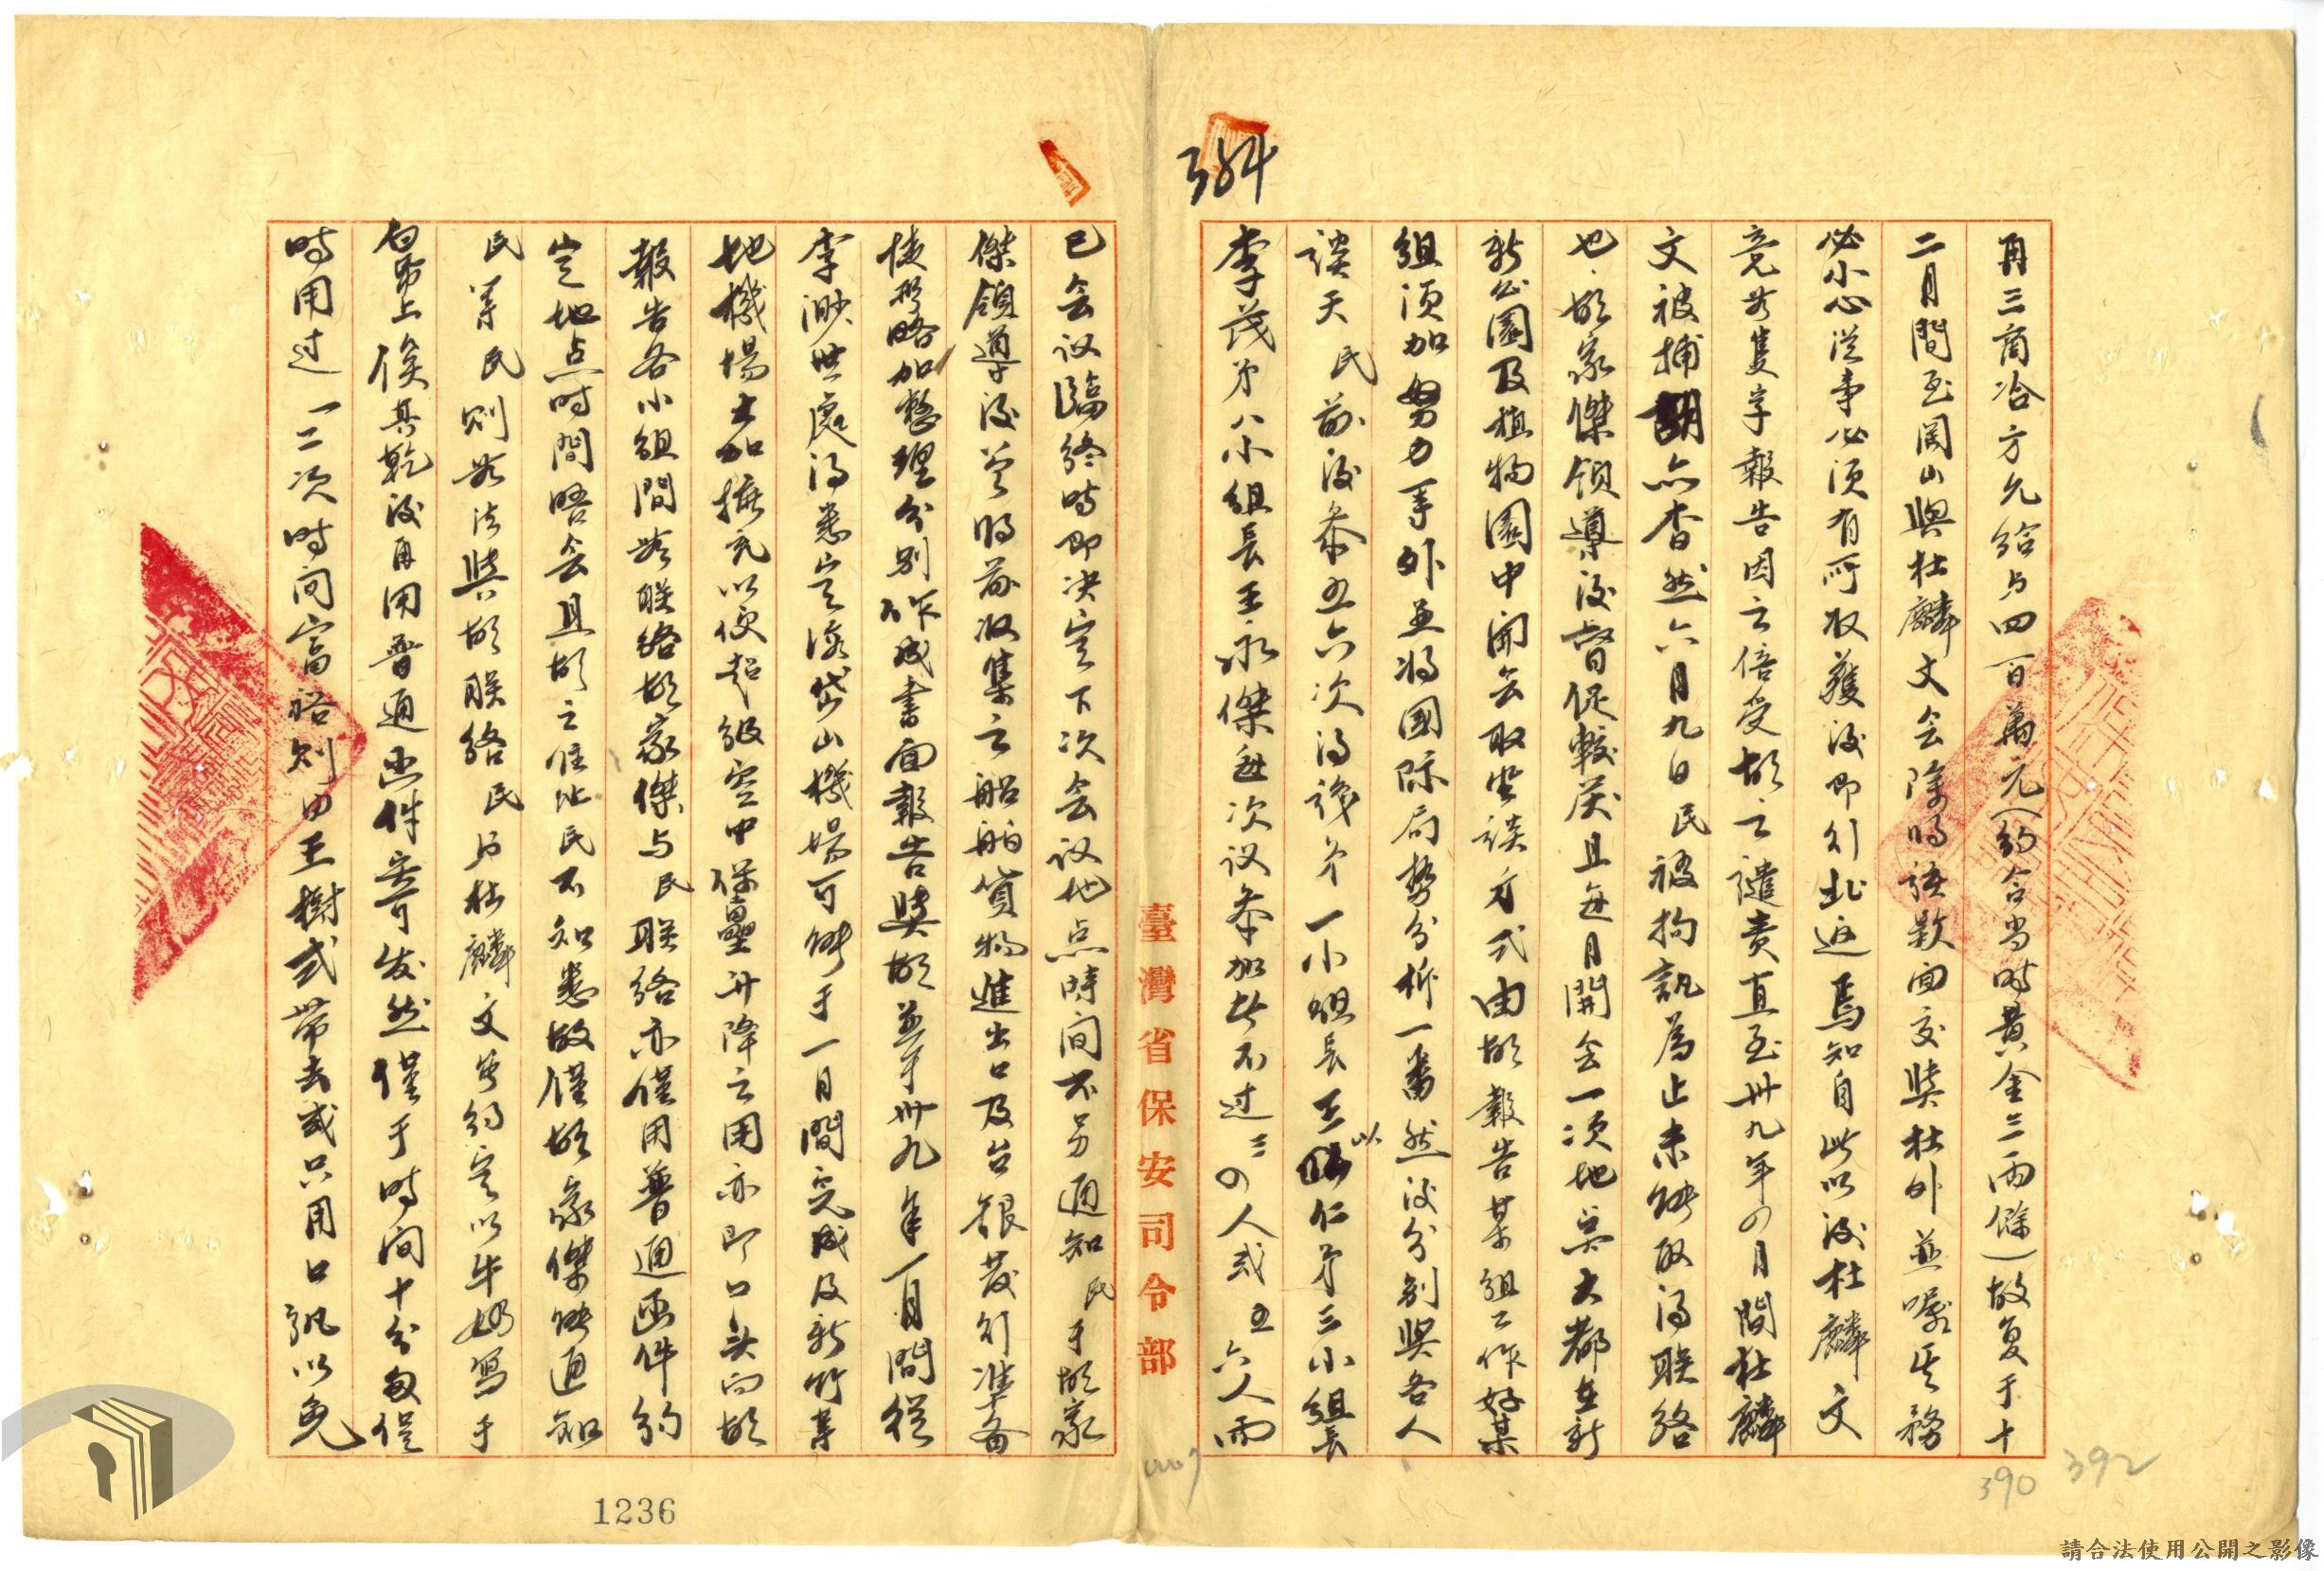 384
再三商洽方允給与四百萬元(約合当時黃金三両餘)故复于十
二月間至岡山與杜麟文会除將該款面交與杜外並囑其務
必小心從事必須有所取獲後即行北返焉知自此以後杜麟文
竟無隻字報告因之倍受胡之譴責直至卅九年の月間杜麟
文被捕亦杳然六月九日民被拘訊為止未能取得联絡
也.胡家傑領導後督促較严且每月開会一次地点大都在新
新公園及植物園中開会取坐談方式由胡報告某組工作好某
組須加努力等外並将國际局勢分析一番然後分别與各人
談天民前後參五六次得識第一小組長王以仁第三小組長
李茂第八小組長王永傑每次议參加者不过三の人或五六人而
已会议臨終時即决定下次会议地点時间不另通知民于胡家
傑領導後曾將前收集之船舶貨物進出口及台銀發行準备
情形略加整理分别作成書面報告與胡並于卅九年一月間從
李渺世處得悉定海岱山機場可能于一月間完成及新竹等
地機場大加擴充以便超級空中堡壘升降之用亦即口头向胡
報告各小組間無联絡胡家傑与民联絡亦僅用普通函件約
定地点时間晤会且胡之住址民不知悉故僅胡家傑能通知
民等民則無法與胡联絡民与杜麟文曾約定以牛奶寫于
白帋上俟其乾後再用普通函件寄可发然僅于時间十分匆促
時用过一二次時间富裕則由王樹或带去或只用口訊以免
臺灣省保安司令部
1236
390
392
請合法使用公開之影像